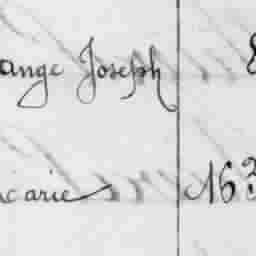 ange Joseph
carie 16